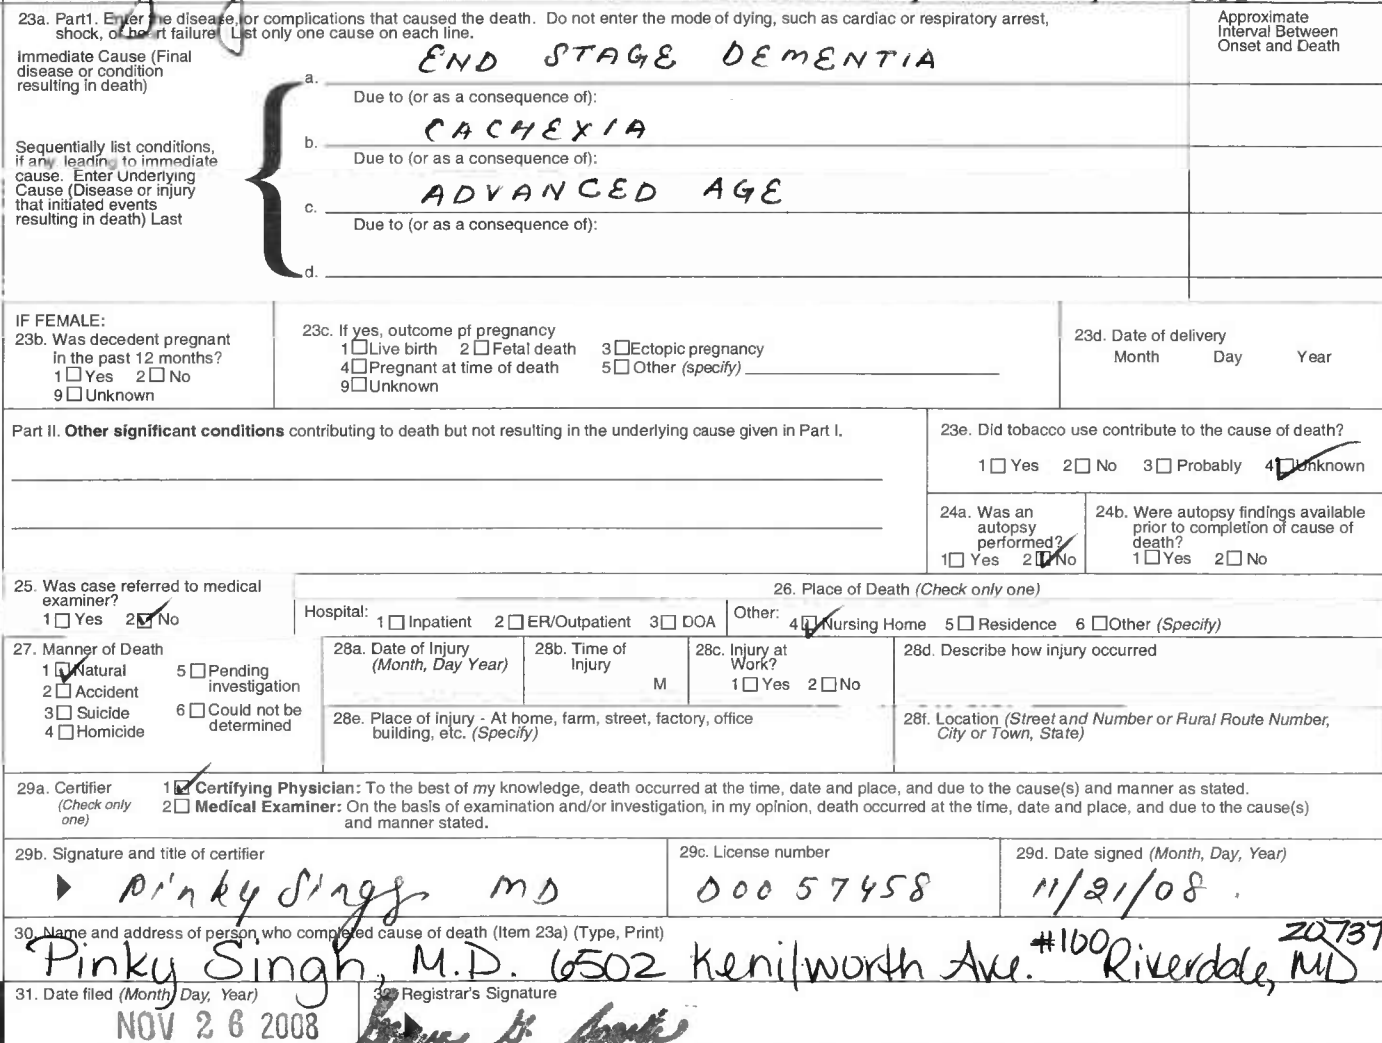 23a. Part1. Enter the disease, or complications that caused the death. Do not enter the mode of dying, such as cardiac or respiratory arrest,
shock, or heart failure. List only one cause on each line.
Approximate
Interval Between
Onset and Death
Immediate Cause (Final
disease or condition
resulting in death)
a. END STAGE DEMENTIA
Due to (or as a consequence of):
b. CACHEXIA
Due to (or as a consequence of):
Sequentially list conditions,
if any, leading to immediate
cause. Enter Underlying
Cause (Disease or injury
that initiated events
resulting in death) Last
c. ADVANCED AGE
Due to (or as a consequence of):
d.
IF FEMALE:
23b. Was decedent pregnant
in the past 12 months?
1 Yes 2 No
9 Unknown
23c. If yes, outcome pf pregnancy
1 Live birth 2 Fetal death 3 Ectopic pregnancy
4 Pregnant at time of death 5 Other (specify)
9 Unknown
23d. Date of delivery
Month Day Year
Part II. Other significant conditions contributing to death but not resulting in the underlying cause given in Part I.
23e. Did tobacco use contribute to the cause of death?
1 Yes 2 No 3 Probably 4 Unknown
24a. Was an
autopsy
performed?
1 Yes 2 No
24b. Were autopsy findings available
prior to completion of cause of
death?
1 Yes 2 No
25. Was case referred to medical
examiner?
1 Yes 2 No
26. Place of Death (Check only one)
Hospital: 1 Inpatient 2 ER/Outpatient 3 DOA Other: 4 Nursing Home 5 Residence 6 Other (Specify)
27. Manner of Death
1 Natural 5 Pending
investigation
2 Accident
3 Suicide 6 Could not be
determined
4 Homicide
28a. Date of Injury
(Month, Day Year)
28b. Time of
Injury
M
28c. Injury at
Work?
1 Yes 2 No
28d. Describe how injury occurred
28e. Place of injury - At home, farm, street, factory, office
building, etc. (Specify)
28f. Location (Street and Number or Rural Route Number,
City or Town, State)
29a. Certifier
(Check only
one)
1 Certifying Physician: To the best of my knowledge, death occurred at the time, date and place, and due to the cause(s) and manner as stated.
2 Medical Examiner: On the basis of examination and/or investigation, in my opinion, death occurred at the time, date and place, and due to the cause(s)
and manner stated.
29b. Signature and title of certifier
Pinky Singh MD
29c. License number
D0057458
29d. Date signed (Month, Day, Year)
11/21/08
30. Name and address of person who completed cause of death (Item 23a) (Type, Print)
Pinky Singh, M.D. 6502 Kenilworth Ave. #100 Riverdale, MD 20737
31. Date filed (Month, Day, Year)
NOV 26 2008
32. Registrar's Signature